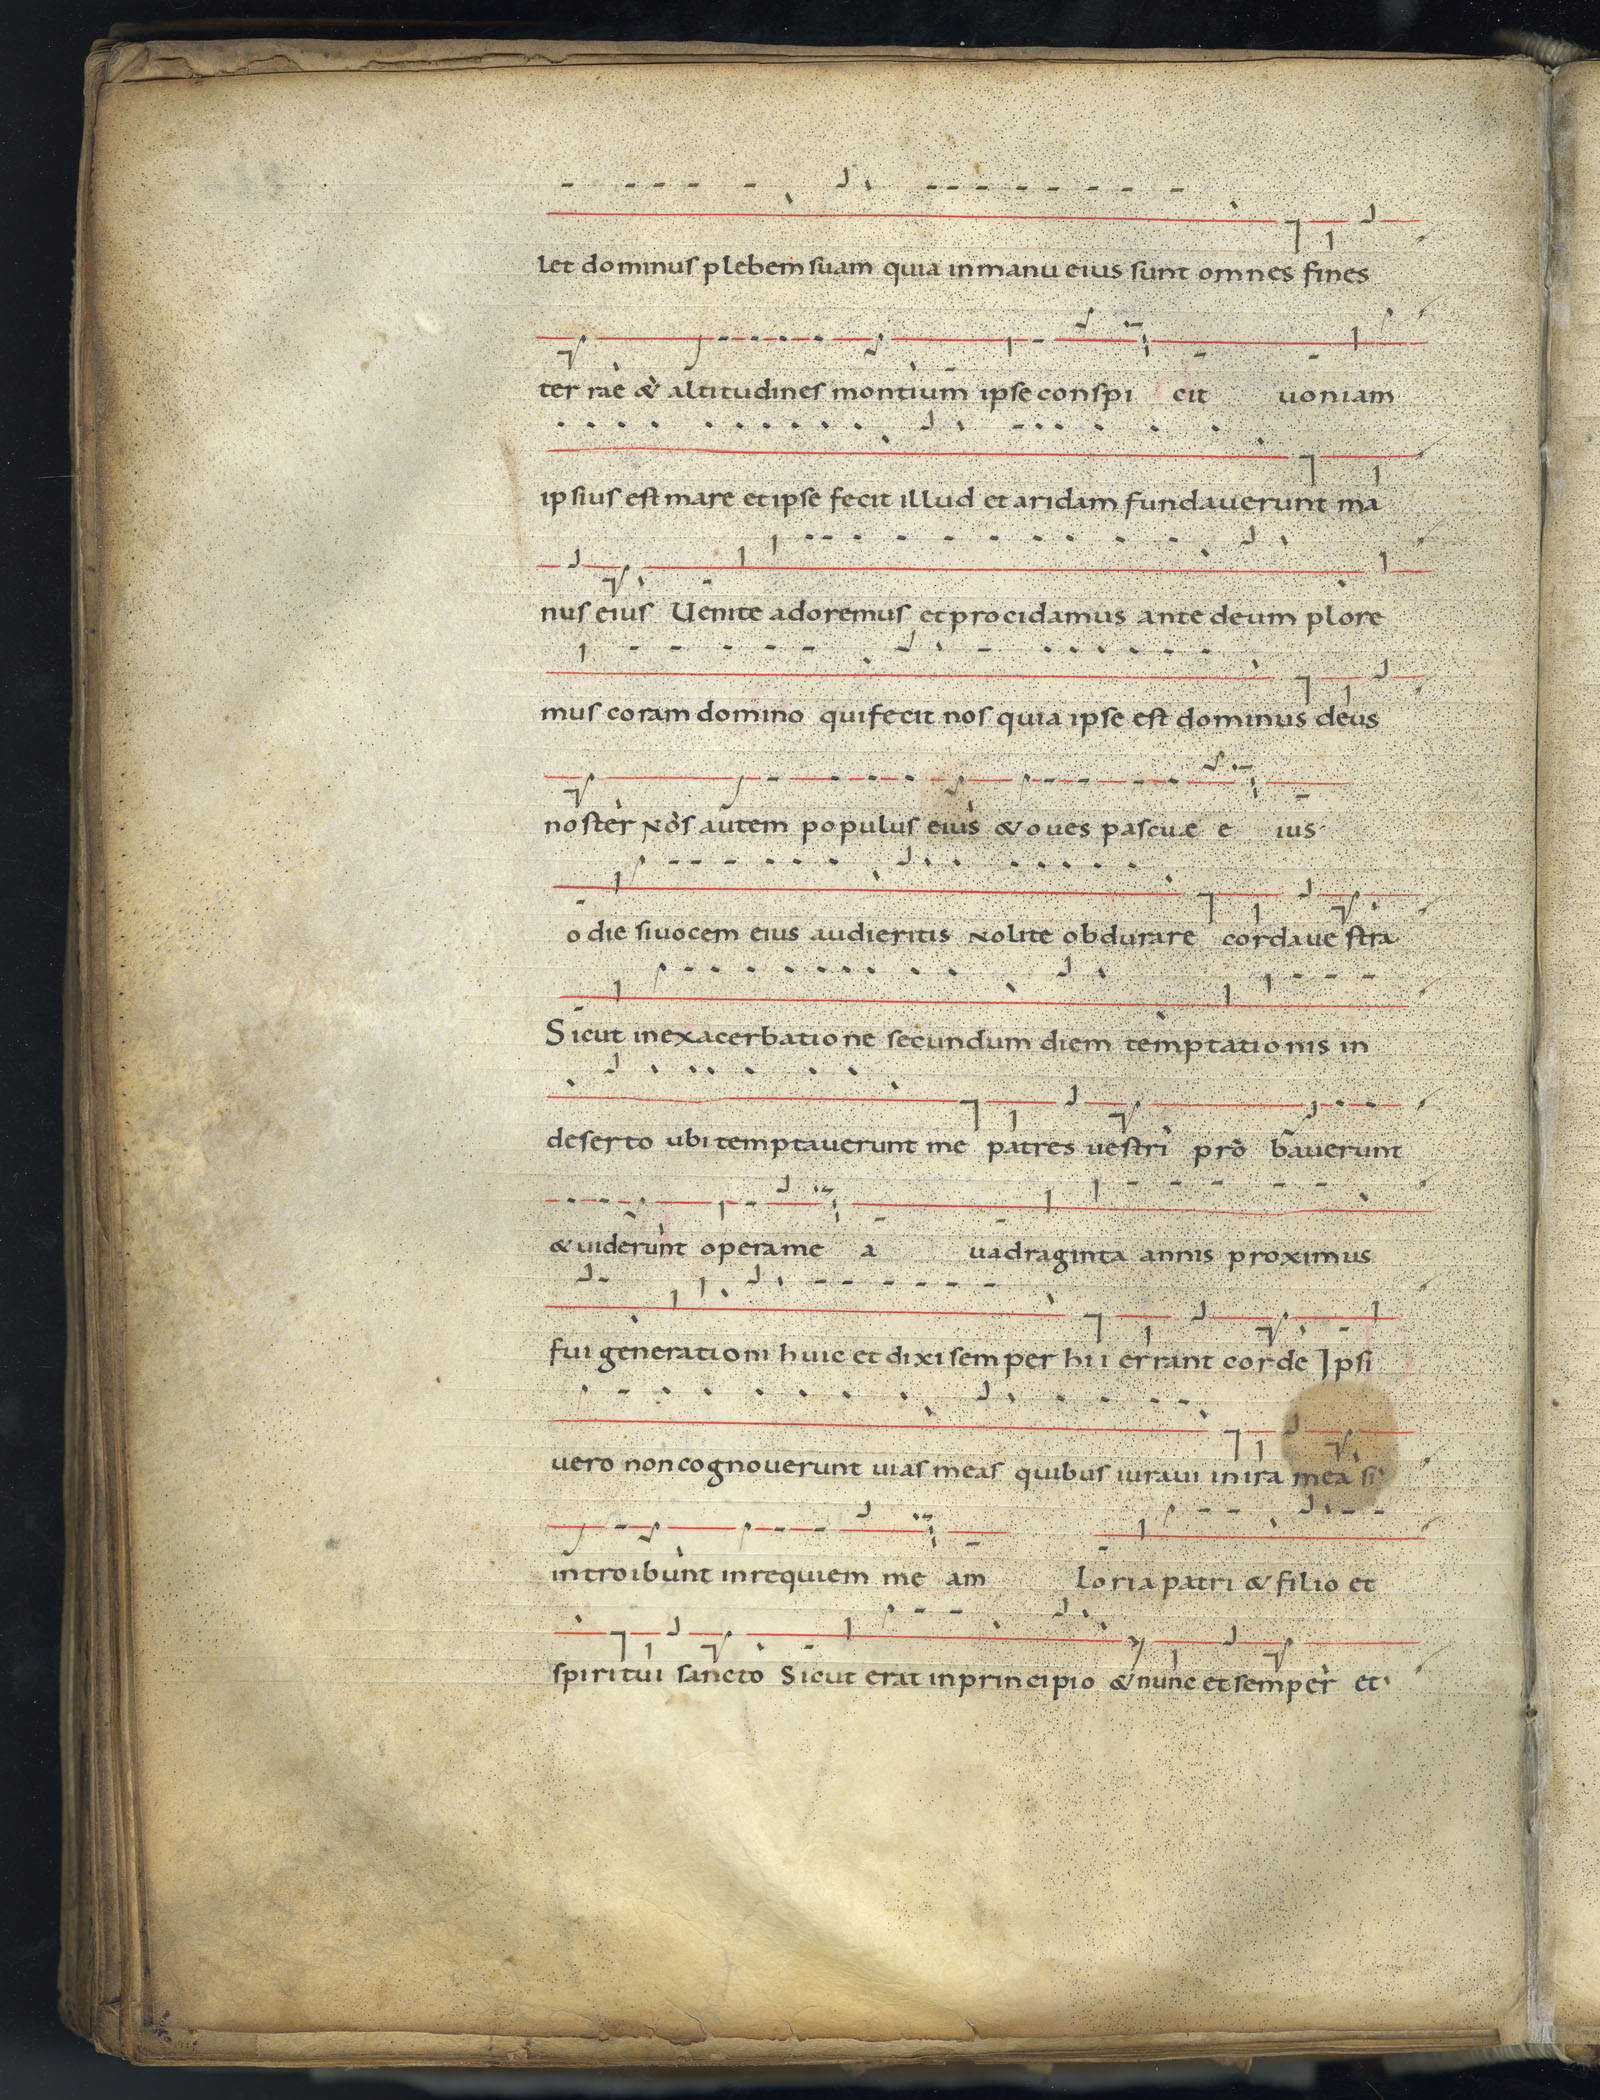 let dominus plebem suam quia in manu eius sunt omnes fines
terrae & altitudines montium ipse conspi cit uoniam
ipsius est mare et ipse fecit illud et aridam fundauerunt ma
nus eius Uenite adoremus et procidamus ante deum plore
mus coram domino qui fecit nos quia ipse est dominus deus
noster Nos autem populus eius & oues pascuae e ius
odie si uocem eius audieritis Nolite obdurare corda uestra
Sicut in exacerbatione secundum diem temptationis in
deserto ubi temptauerunt me patres uestri pro bauerunt
& uiderunt opera me a uadraginta annis proximus
fui generationi huic et dixi semper hii errant corde Ipsi
uero non cognouerunt uias meas quibus iuraui in ira mea si
introibunt in requiem me am loria patri & filio et
spiritui sancto Sicut erat in principio & nunc et semper et